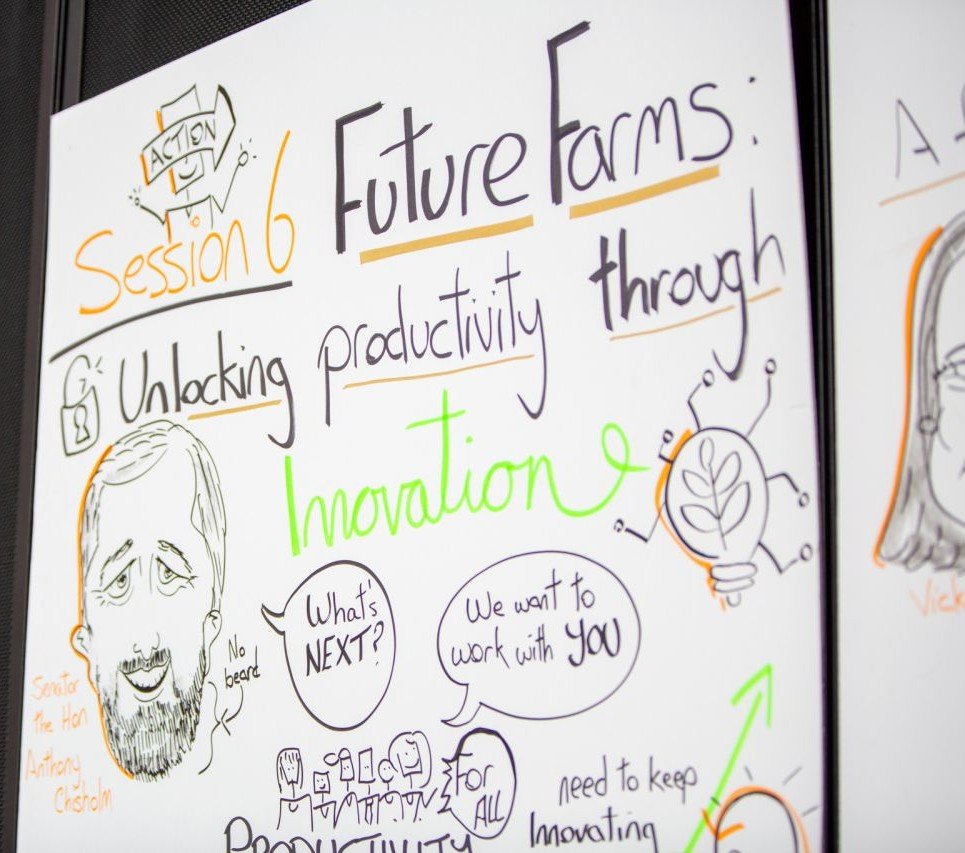 ACTION
Session 6
Future Farms:
Unlocking productivity through
Inovation
What's
NEXT?
We want to
work with YOU
No
beard
Senator
the Hon
Anthony
Chisholm
For
ALL
need to keep
Innovating
PRODUCTIVITY
A
Vick